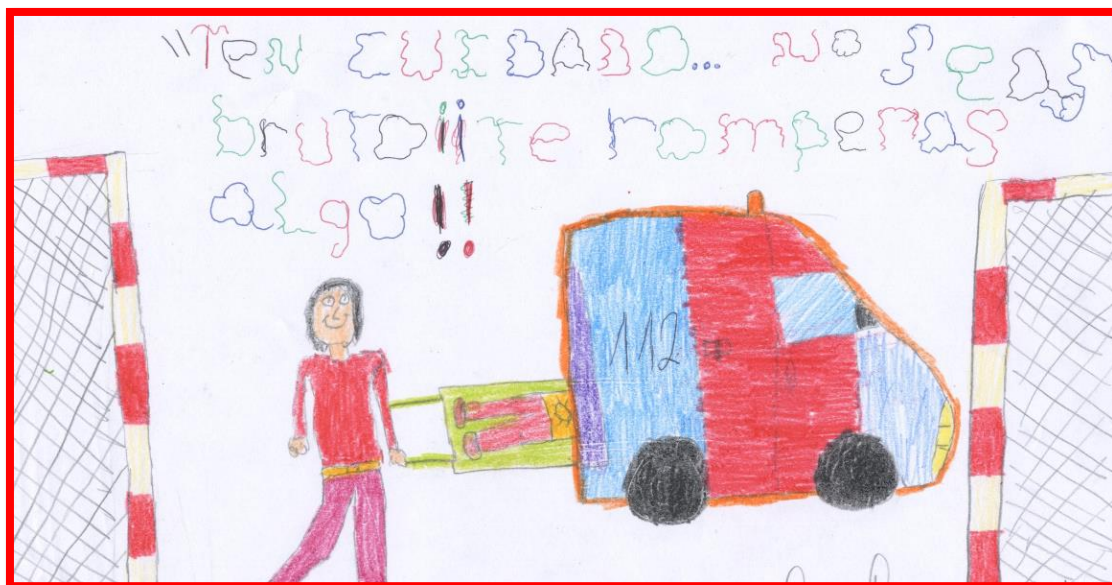 "Ten CUIDADO... NO SeAS
bruTO¡¡Te romperas
aLgo!!
112